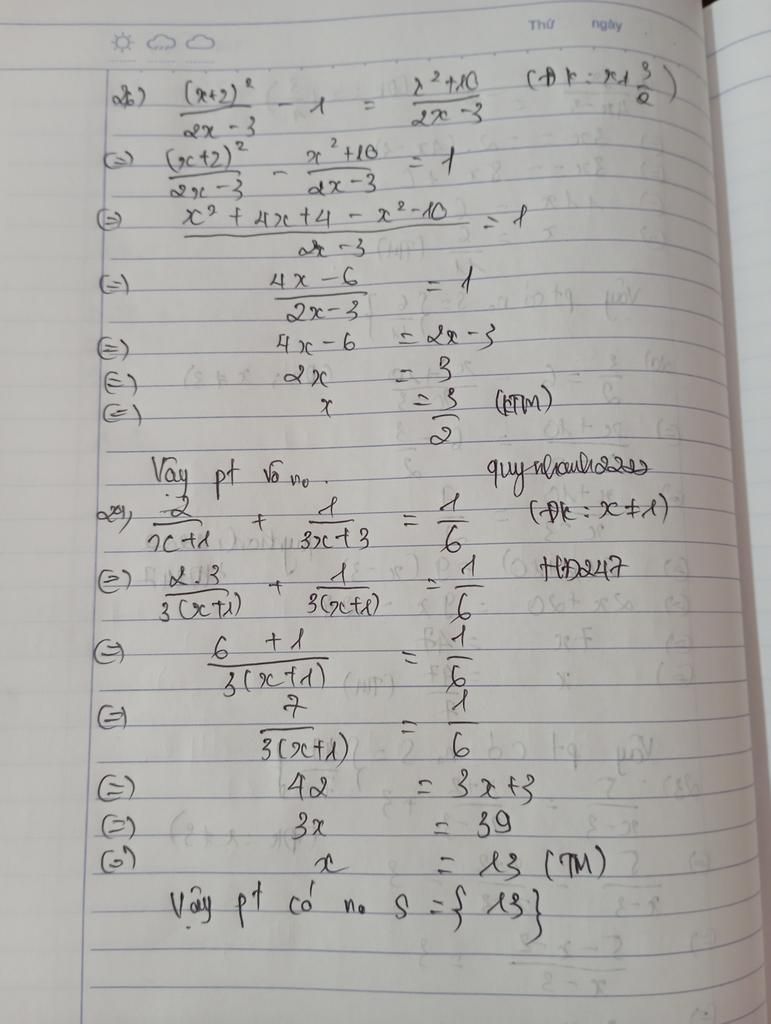 Thứ ngày
26) (x+2)²/(2x-3) - 1 = (x²+10)/(2x-3) (Đk: x≠3/2)
(=) (x+2)²/(2x-3) - (x²+10)/(2x-3) = 1
(=) (x²+4x+4-x²-10)/(2x-3) = 1
(=) (4x-6)/(2x-3) = 1
(=) 4x-6 = 2x-3
(=) 2x = 3
(=) x = 3/2 (KTM)
Vậy pt vô no.
quynhanh2222
2/(x+1) + 1/(3x+3) = 1/6 (Đk: x≠1)
(=) 2.3/3(x+1) + 1/3(x+1) = 1/6 HD247
(=) (6+1)/3(x+1) = 1/6
(=) 7/3(x+1) = 1/6
(=) 42 = 3x+3
(=) 3x = 39
(=) x = 13 (TM)
Vậy pt có no S = {13}